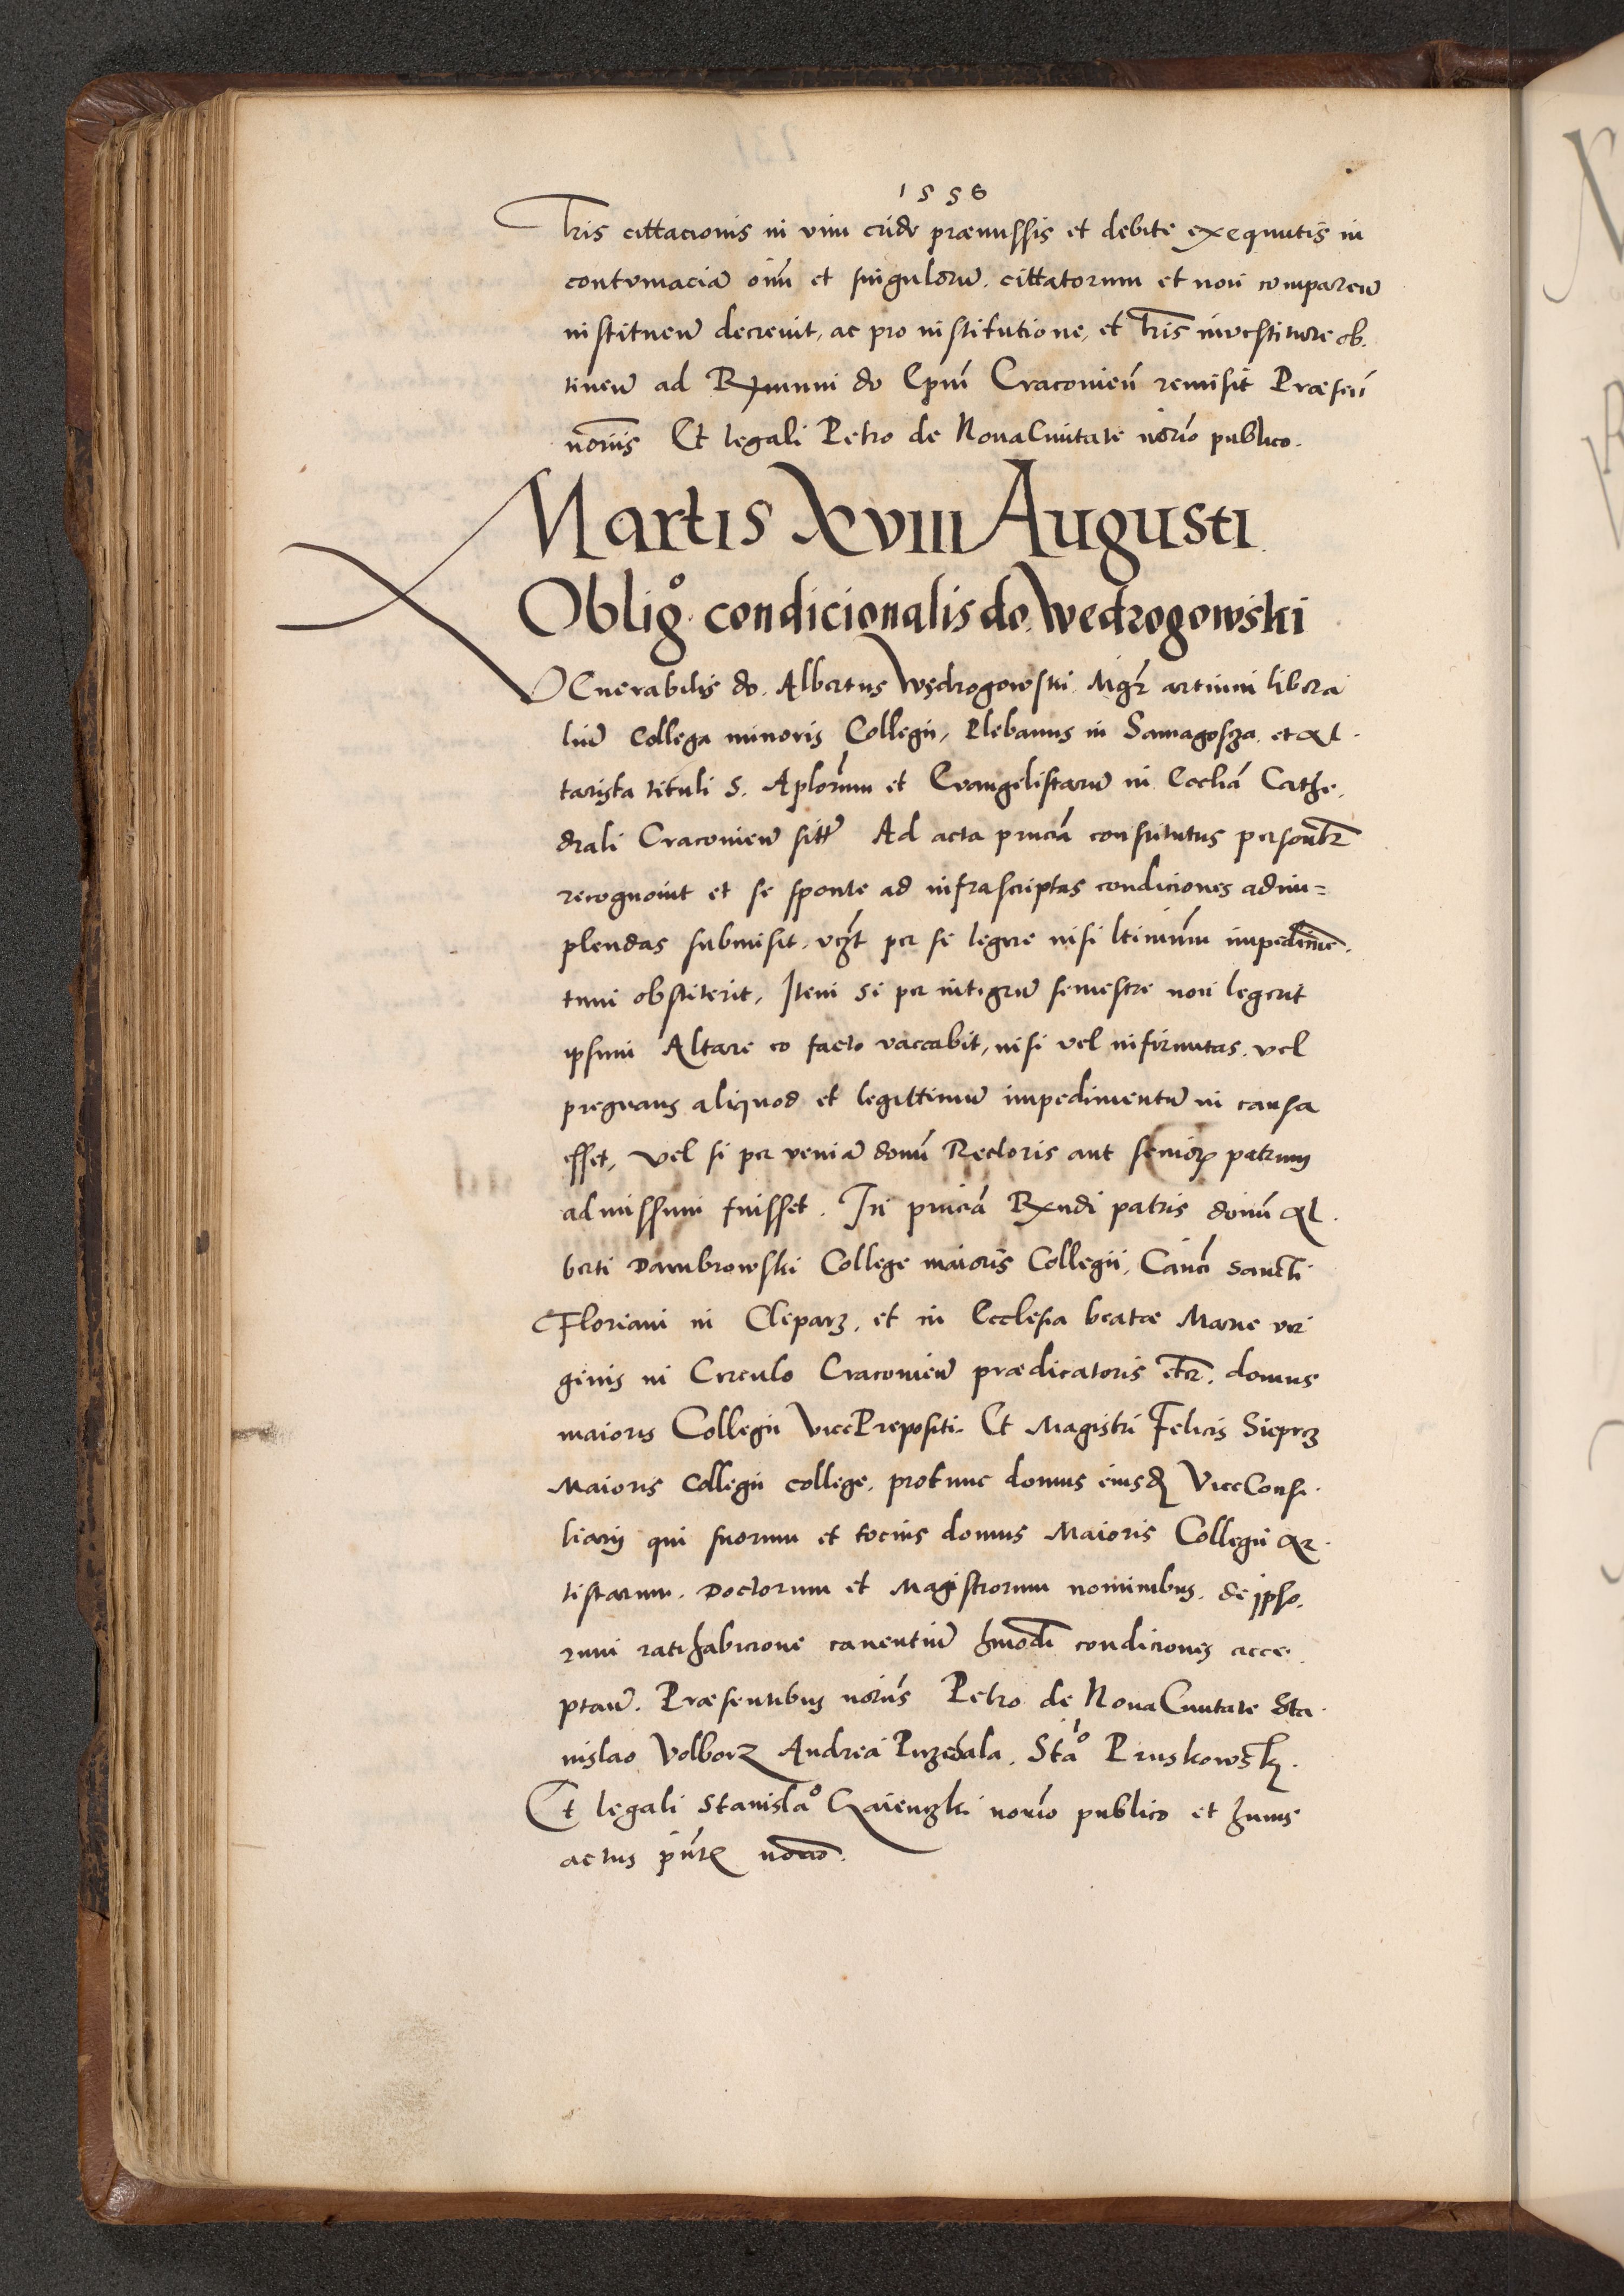 1556
Lris cittacionis in vim cride præmissis et debite exequutis in
contumaciā oīm et singulorū. cittatorum et non compareñ
instituenđ decrevit, ac pro institutione, et Lris investiture ob.
tineñ ad Rx̃mum do Epūm Cracovieñ remisit Præseñ
noriis Et legali Petro de Nova Civitate norio publico.
Martis XVIII Augusti
Oblig̊. condicionalis do. Wedrogowski
VEnerabilis do. Albertus Wedrogowski Mgr̃ artium libera
liū Collega minoris Collegii, Plebanus in Samagosza et Al.
tarista tituli S. Aplorum et Evangelistarū in Eccliā Cathe.
drali Cracovieñ sitī Ad acta prnciā constitutus personlr̃
recognovit et se sponte ad infrascriptas condiciones adim=
plendas submisit, vczt per se legere nisi ltimūm impedimē.
tum obstiterit, Item si per integrū semestre non legerit
ipsum Altare eo facto vaccabit, nisi vel infirmitas, vel
pregnans aliquod et legittimū impedimentū in causa
esset, vel si per veniā domī Rectoris aut seniorꝝ patrum
admissum fuisset. In prnciā Rx̃ndi patris domī Al.
berti Dambrowski College maioris Collegii, Canci Sancti
Floriani in Cleparz, et in Ecclesia beatæ Marie vir
ginis in Circulo Cracovieñ prædicatoris etc̃. domus
maioris Collegii VicePrepositi. Et Magistri Felicis Sieprcz
Maioris Collegii college, protunc domus eiusđ ViceConsi.
liarij qui suorum et tocius domus Maioris Collegii Ar.
tistarum. Doctorum et Magistrorum nominibus. de ipso.
rum ratihabicione caventiū hmodi condiciones acce.
ptaruñ. Præsentibus noriis Petro de Nova Civitate Sta.
nislao Volborz Andrea Przedala. Stao Pruskowsk.
Et legali Stanislao Gaienczki norio publico et huius
actus pñte norio.